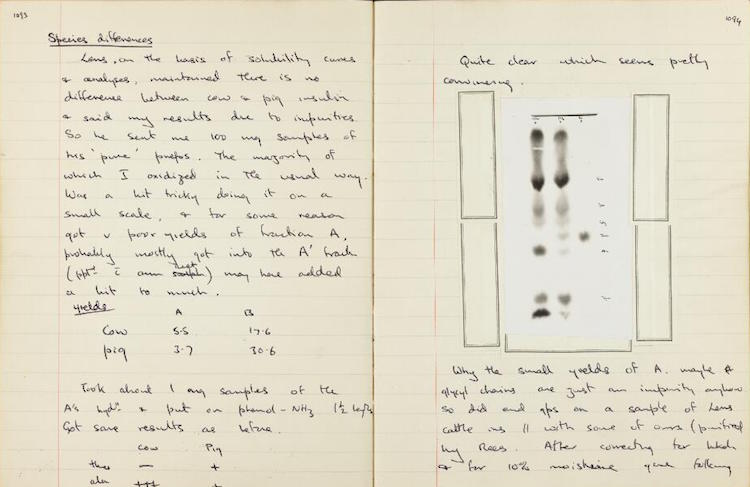 1093
Species differences
Lens, on the basis of solubility curves
& analyses, maintained there is no
difference between cow & pig insulin
& said my results due to impurities
So he sent me 100 mg samples of
his 'pure' preps. The majority of
which I oxidized in the usual way.
Was a bit tricky doing it on a
small scale, & for some reason
got v poor yields of fraction A,
probably mostly got into the A' fract
(ppt c̄ amm) may have added
a bit to much.
yields
A B
Cow 5.5 17.6
pig 3.7 30.6
Took about 1 mg samples of the
A's hyd & put on phenol-NH3
Got same results as before.
Cow Pig
threo — +
ala +++ +
1094
Quite clear which seems pretty
convincing.
Why the small yields of A. maybe
glycyl chains are just an impurity anyhow
so did end gps on a sample of Lens
cattle ins || with some of ours (purified
by Rees. After correcting for which
& for 10% moisture gave following